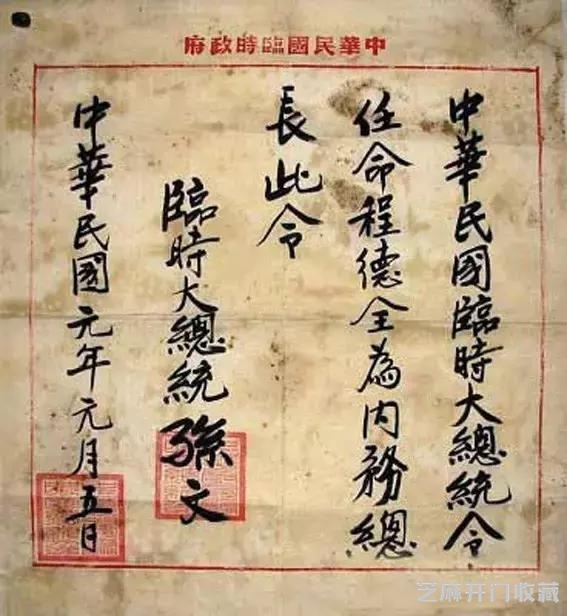 中華民國臨時政府
中華民國臨時大總統令
任命程德全為内務總
長此令
臨時大總統孫文
中華民國元年元月五日
芝麻开门收藏